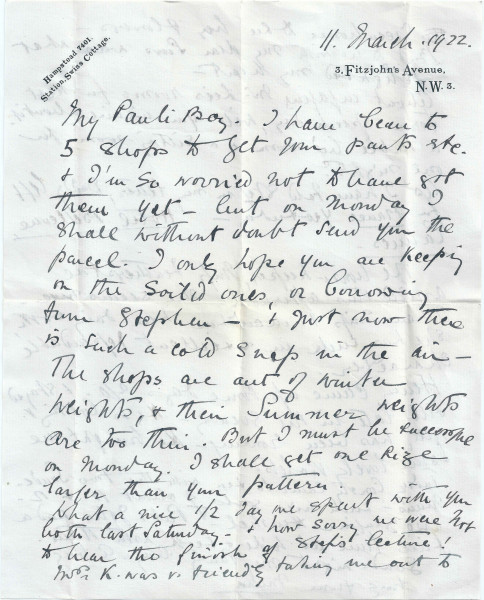 Hampstead 7401.
Station, Swiss Cottage.
11. March. 1922.
3, Fitzjohn's Avenue,
N.W. 3.
My Pauli Boy. I have been to
5 shops to get your pants etc.
& I'm so worried not to have got
them yet – but on Monday I
shall without doubt send you the
parcel. I only hope you are keeping
on the soiled ones, or borrowing
from Stephen – & just now there
is such a cold snap in the air –
The shops are out of winter
weights, & their Summer weights
are too thin. But I must be successful
on Monday. I shall get one size
larger than your pattern.
What a nice 1/2 day we spent with you
both last Saturday – & how sorry we were not
to hear the finish of Step's lecture!
Mrs K. was v. friendly taking me out to